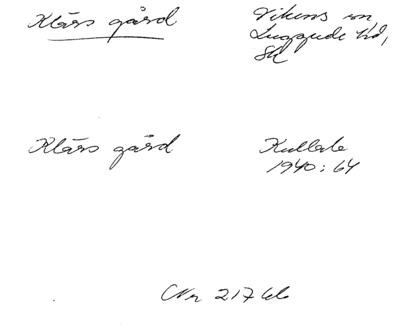 Klärs gård
Vikens sn
Luggude hd,
Sk
Klärs gård
Kullab.
1940: 64
Nr 217